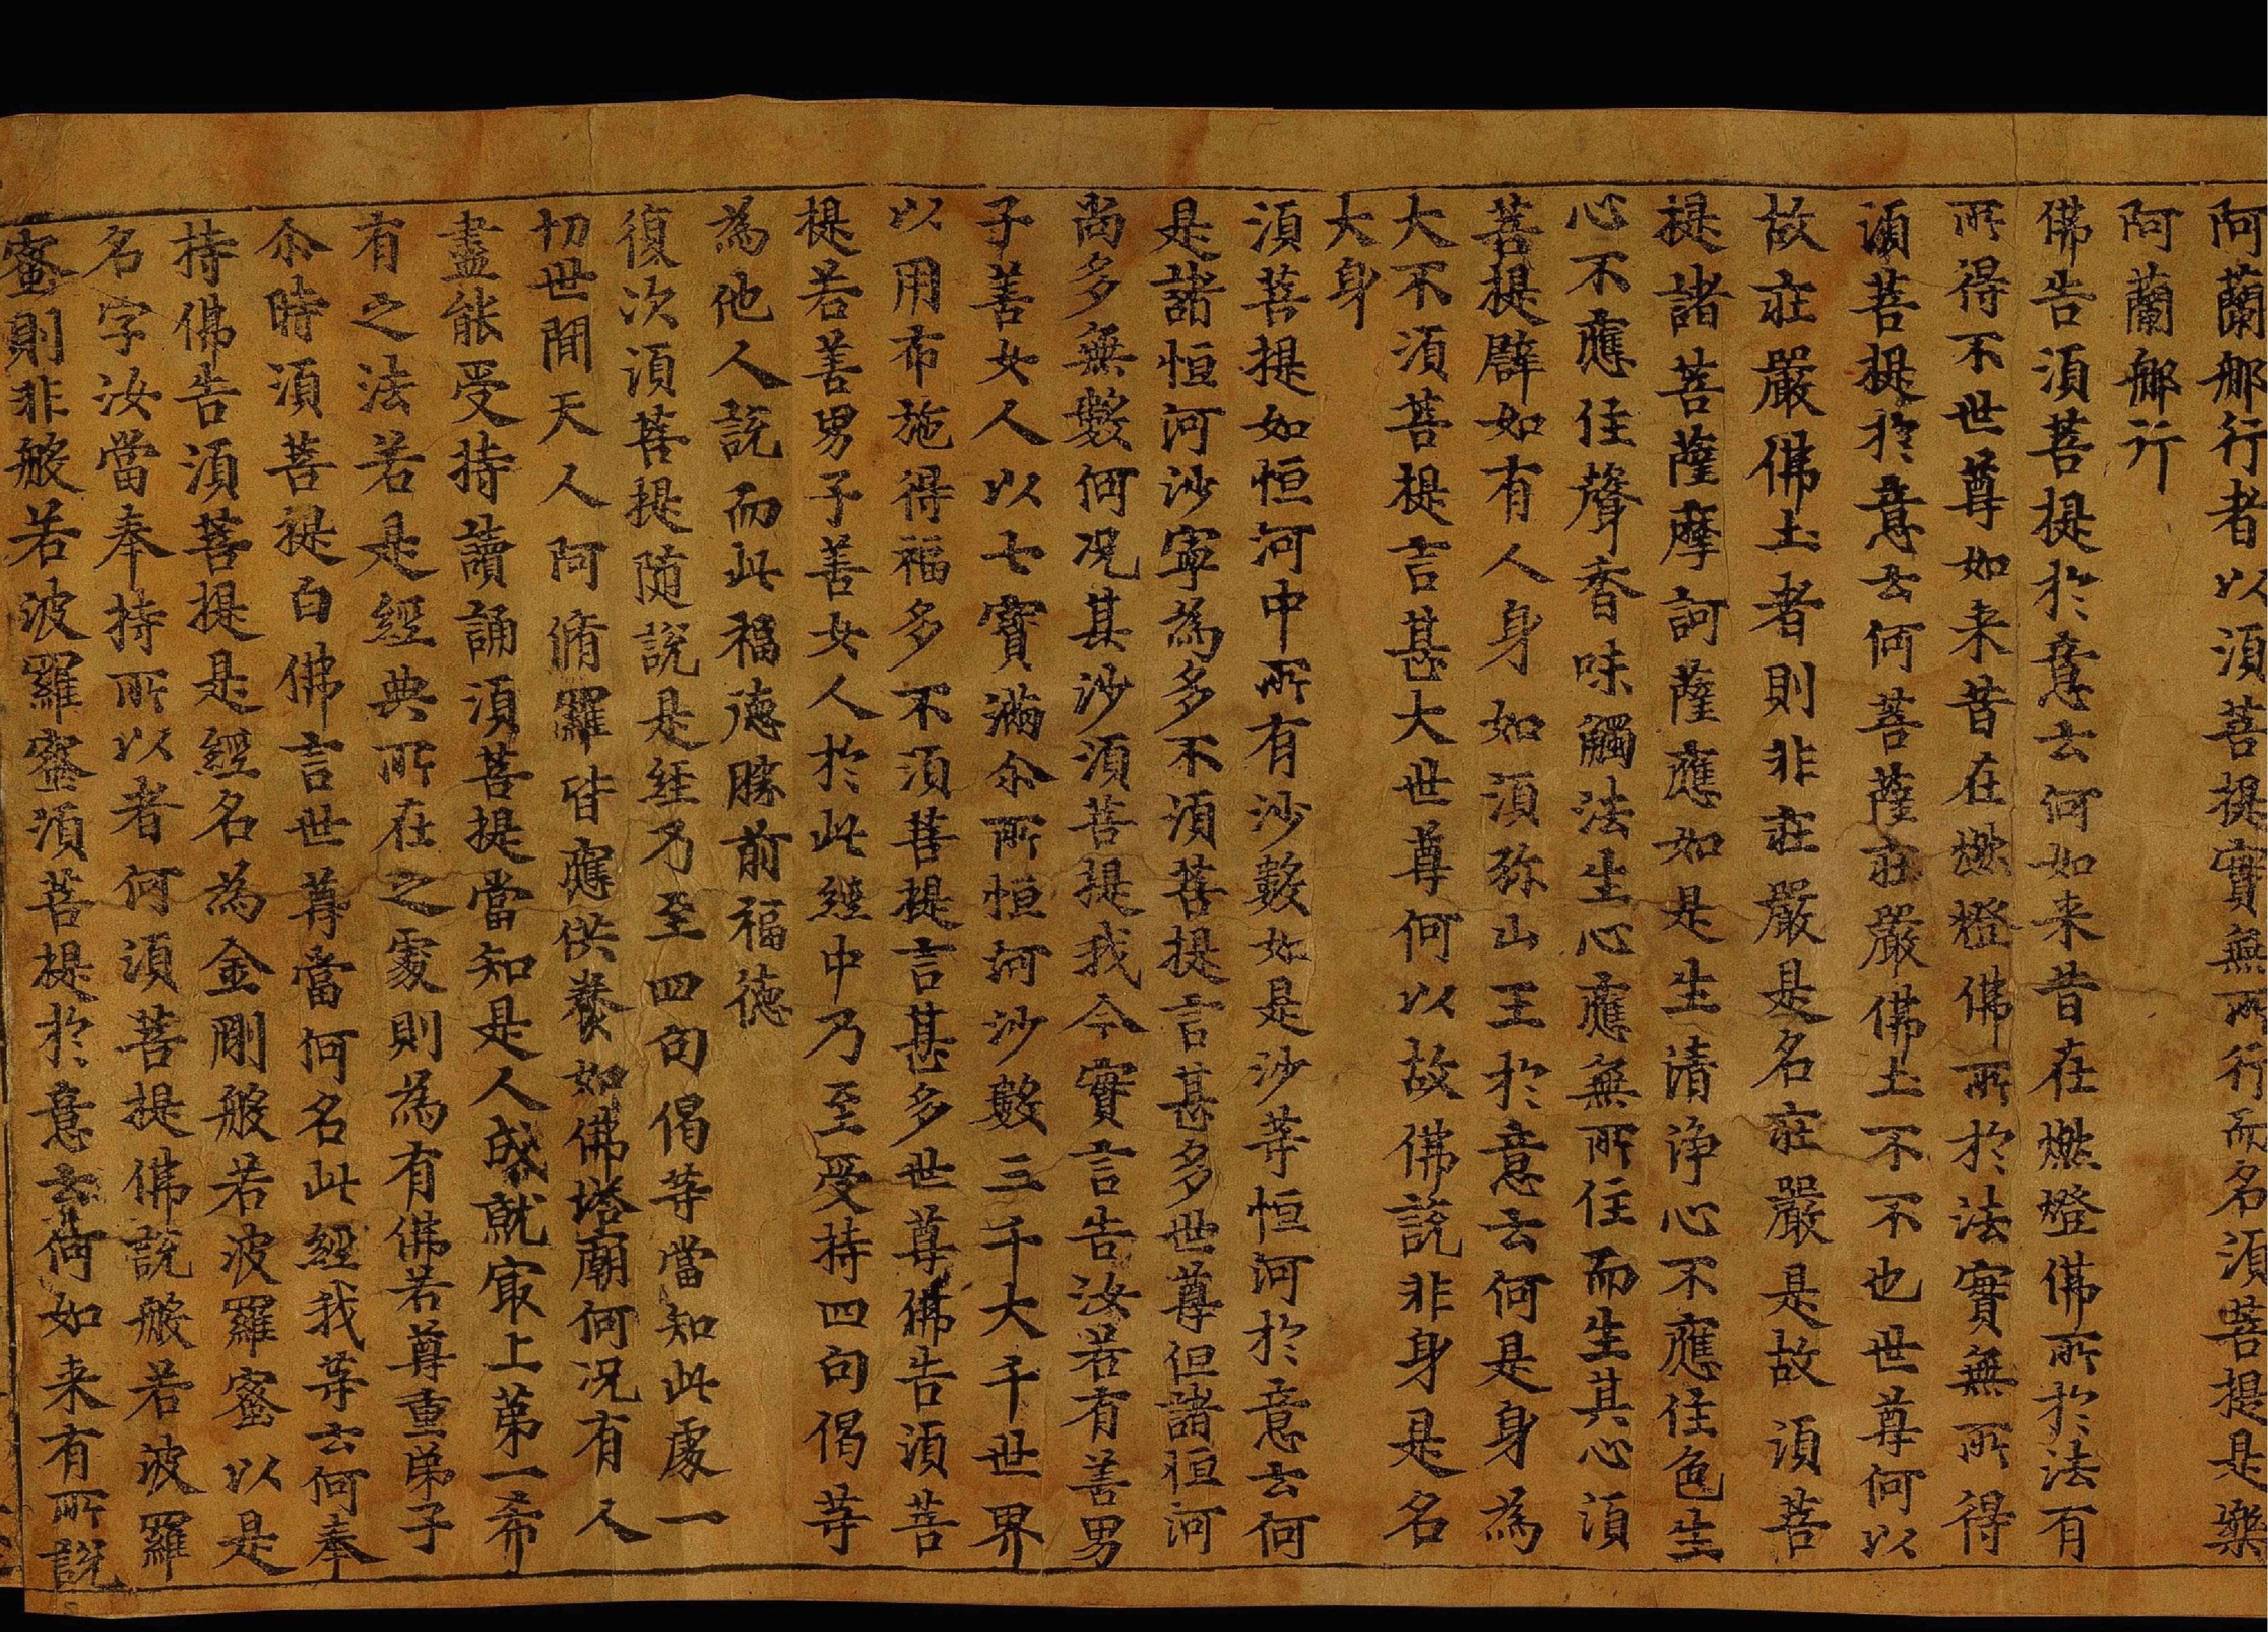 阿蘭那行者以須菩提實無所行而名須菩提是樂
阿蘭那行
佛告須菩提於意云何如来昔在燃燈佛所於法有
所得不世尊如来昔在燃燈佛所於法實無所得
須菩提於意云何菩薩莊嚴佛土不不也世尊何以
故莊嚴佛土者則非莊嚴是名莊嚴是故須菩
提諸菩薩摩訶薩應如是生清淨心不應住色生
心不應住聲香味觸法生心應無所住而生其心須
菩提譬如有人身如須弥山王於意云何是身為
大不須菩提言甚大世尊何以故佛説非身是名
大身
須菩提如恒河中所有沙數如是沙等恒河於意云何
是諸恒河沙寧為多不須菩提言甚多世尊但諸恒河
尚多無數何況其沙須菩提我今實言告汝若有善男
子善女人以七寶滿尒所恒河沙數三千大千世界
以用布施得福多不須菩提言甚多世尊佛告須菩
提若善男子善女人於此經中乃至受持四句偈等
為他人説而此福德勝前福德
復次須菩提随説是經乃至四句偈等當知此處一
切世間天人阿脩羅皆應供養如佛塔廟何況有人
盡能受持讀誦須菩提當知是人成就㝡上第一希
有之法若是經典所在之處則為有佛若尊重弟子
尒時須菩提白佛言世尊當何名此經我等云何奉
持佛告須菩提是經名為金剛般若波羅蜜以是
名字汝當奉持所以者何須菩提佛説般若波羅
蜜則非般若波羅蜜須菩提於意云何如来有所説